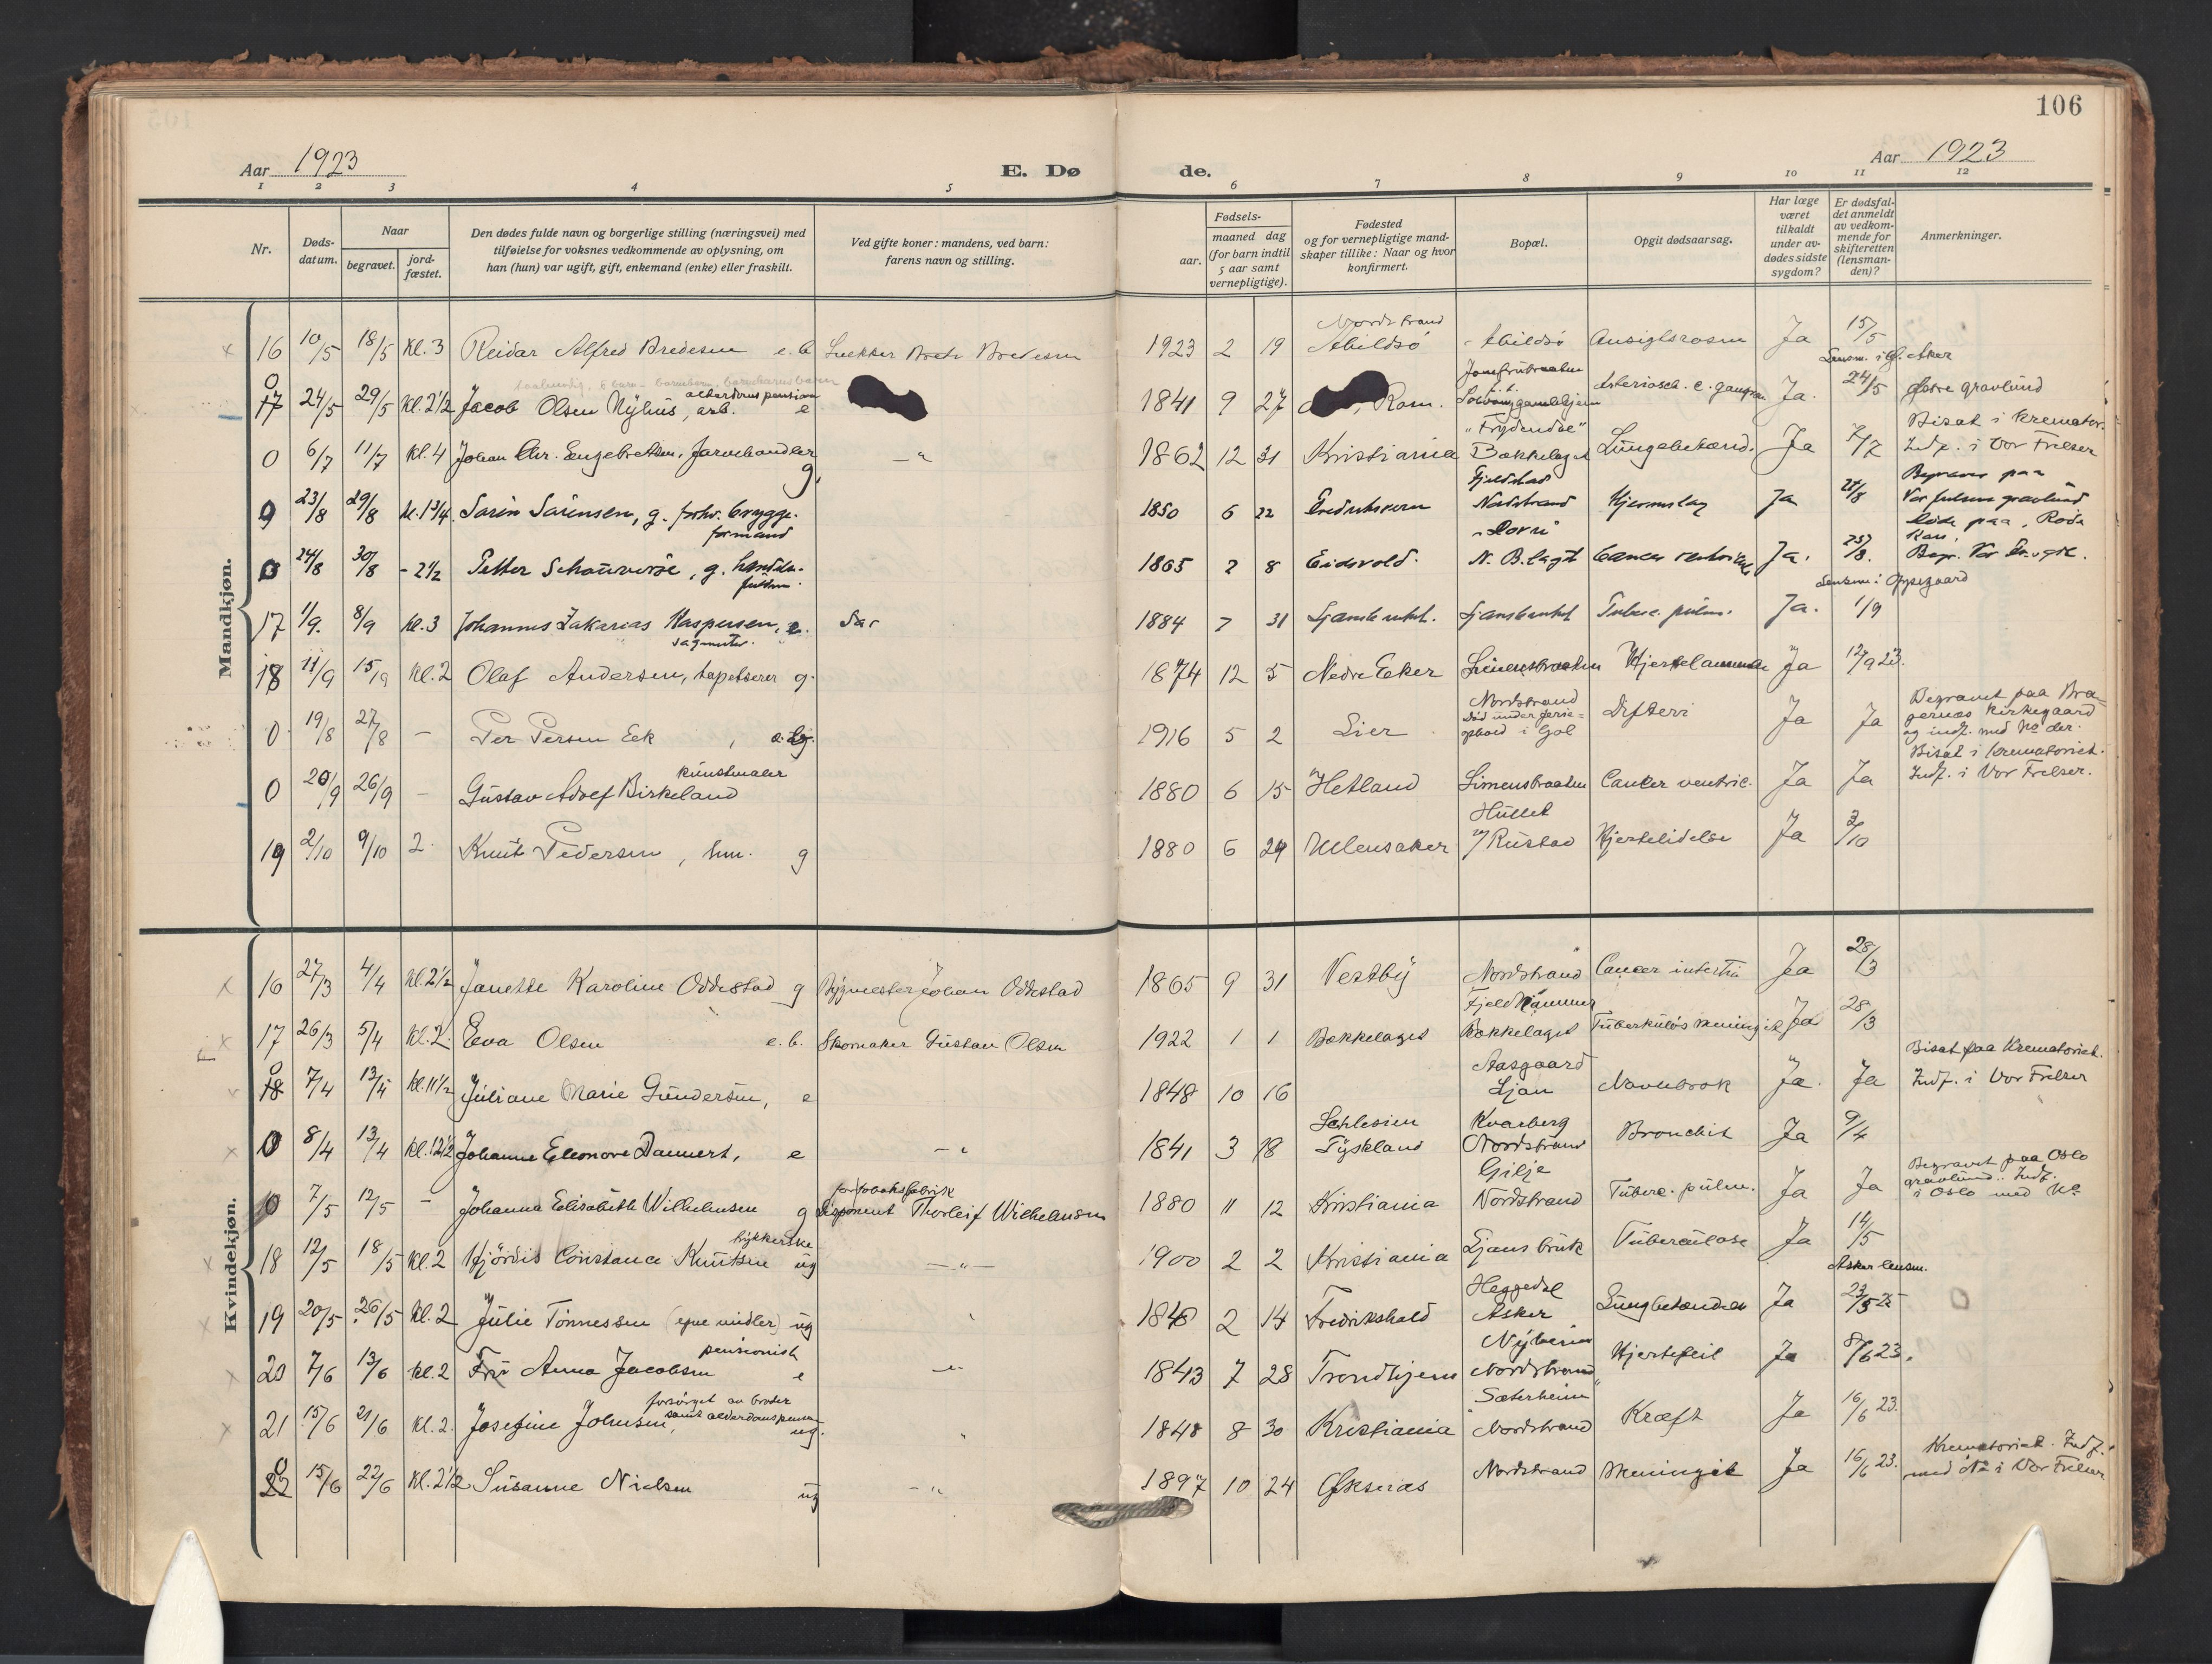 106
Aar 1923
E. Dø de.
Aar 1923
1 2 3 4 5 6 7 8 9 10 11 12
Nr.
Døds-datum.
Naar
begravet.
jord-fæstet.
Den dødes fulde navn og borgerlige stilling (næringsvei) med
tilføielse for voksnes vedkommende av oplysning, om
han (hun) var ugift, gift, enkemand (enke) eller fraskilt.
Ved gifte koner: mandens, ved barn:
farens navn og stilling.
Fødsels-
aar.
maaned dag
(for barn indtil
5 aar samt
vernepligtige).
Fødested
og for vernepligtige mand-
skaper tillike: Naar og hvor
konfirmert.
Bopæl.
Opgit dødsaarsag.
Har læge
været
tilkaldt
under av-
dødes sidste
sygdom?
Er dødsfal-
det anmeldt
av vedkom-
mende for
skifteretten
(lensman-
den)?
Anmerkninger.
Mandkjøn.
16 10/5 18/5 kl. 3 Reidar Alfred Bredesen e.b 1923 2 19 Nordstrand Abildsö Abildsö Ja 15/5
0 17 24/5 29/5 kl. 2½ Jacob Olsen Nyhus, arb. alderdomspension e 1841 9 27 Rom. Ja. 24/5 Østre gravlund
0 6/7 11/7 kl. 4 Johan Chr. Engebretsen, farvehandler g. 1862 12 31 Kristiania "Frydendal" Bækkelaget Lungebetænd. Ja 7/7 Bisat i Kremator. Indf. i Vor Frelser
0 23/8 29/8 kl. 1¾ Sörin Sörinsen, g. forhv. bryggeformand 1850 6 22 Fredriksvern Fjeldstad Nordstrand Hjerneslag Ja 24/8 Begraves paa Vor frelsers gravlund
0 24/8 30/8 - 2½ Petter Schouveröe, g. 1865 2 8 Eidsvold. N. B.lagt Cancer Ja. 25/8.
17 1/9. 8/9 kl. 3 Johannes Zakarias Kaspersen, 1884 7 31 Ljansbruket. Ljansbruket Tuberc. pulm. Ja. 1/9
18 11/9 15/9 kl. 2 Olaf Andersen, tapetserer g. 1874 12 5 Nedre Eker Simensbraaten Hjertelammelse Ja 12/9 23.
0 19/8 27/8 - Per Persen Eek 1916 5 2 Lier Nordstrand Död under ferieophold i Gol Difteri Ja Ja Begravet paa Bragernes Kirkegaard og indf. med No der.
0 20/9 26/9 - Gustav Adolf Birkeland kunstmaler 1880 6 15 Hetland Simensbraaten Cancer ventric. Ja Ja Bisat i Krematoriet. Indf. i Vor Frelser.
19 2/10 9/10 2. Knut Pedersen, hm. g 1880 6 29 Ullensaker Hullet Rustad Hjertelidelse Ja 3/10
Kvindekjøn.
16 27/3 4/4 kl. 2½ Janette Karoline Oddestad g Bygmester Johan Oddestad 1865 9 31 Vestby Nordstrand Cancer Ja 28/3
17 26/3 5/4 kl. 2. Eva Olsen e.b. Skomaker Gustav Olsen 1922 1 1 Bækkelaget Fjeldhammer Bækkelaget Tuberkuløs meningit Ja 28/3
0 18 7/4 13/4 kl. 11½ Juliane Marie Gundersen, e 1848 10 16 Aasgaard Ljan Navnebrok Ja. Ja Bisat paa Krematoriet. Indf. i Vor Frelser
0 8/4 13/4 kl. 12½ Johanne Eleonore Dannert, e 1841 3 18 Schlesien Tyskland Kvarberg Nordstrand Bronchit Ja 9/4
0 7/5 12/5 - Johanna Elisabeth Wilhelmsen g for tobaksfabrik Disponent Thorleif Wilhelmsen 1880 11 12 Kristiania Gilje Nordstrand Tuberc. pulm. Ja Ja Begravet paa Oslo gravlund. Indf. i Oslo med No
18 12/5 18/5 kl. 2 Hjördis Constance Knutsen trykkerske ug 1900 2 2 Kristiania Ljansbruk Tuberculose Ja 14/5
19 20/5 26/5 kl. 2 Julie Tönnessen (egne midler) ug 1848 2 14 Fredrikshald Heggedal Asker Lungbetændelse Ja Asker lensm. 23/5
20 7/6 13/6 kl. 2 Fru Anna Jacobsen pensionist e 1843 7 28 Trondhjem Nordstrand Hjertefeil Ja 8/6 23.
21 15/6 21/6 kl. 2. Josefine Johnsen, forsörget av broder samt alderdomspension ug. 1848 8 30 Kristiania Sæterheim Nordstrand Kræft Ja 16/6 23.
0 22 15/6 22/6 kl. 2½ Susanne Nielsen ug 1897 10 24 Nordstrand Meningit Ja 16/6 23. Krematoriet. Indf. med No i Vor Frelser